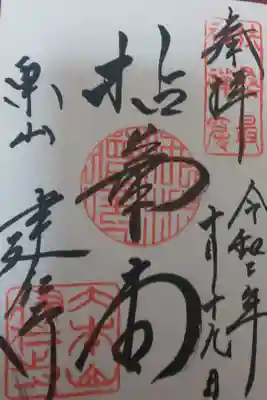 奉拝
令和二年
十月十九日
拈華堂
東山
建仁寺